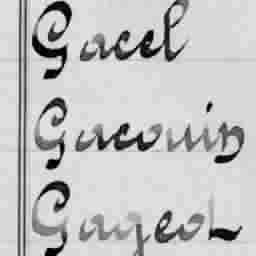 Gacel
Gacouin
Gageot